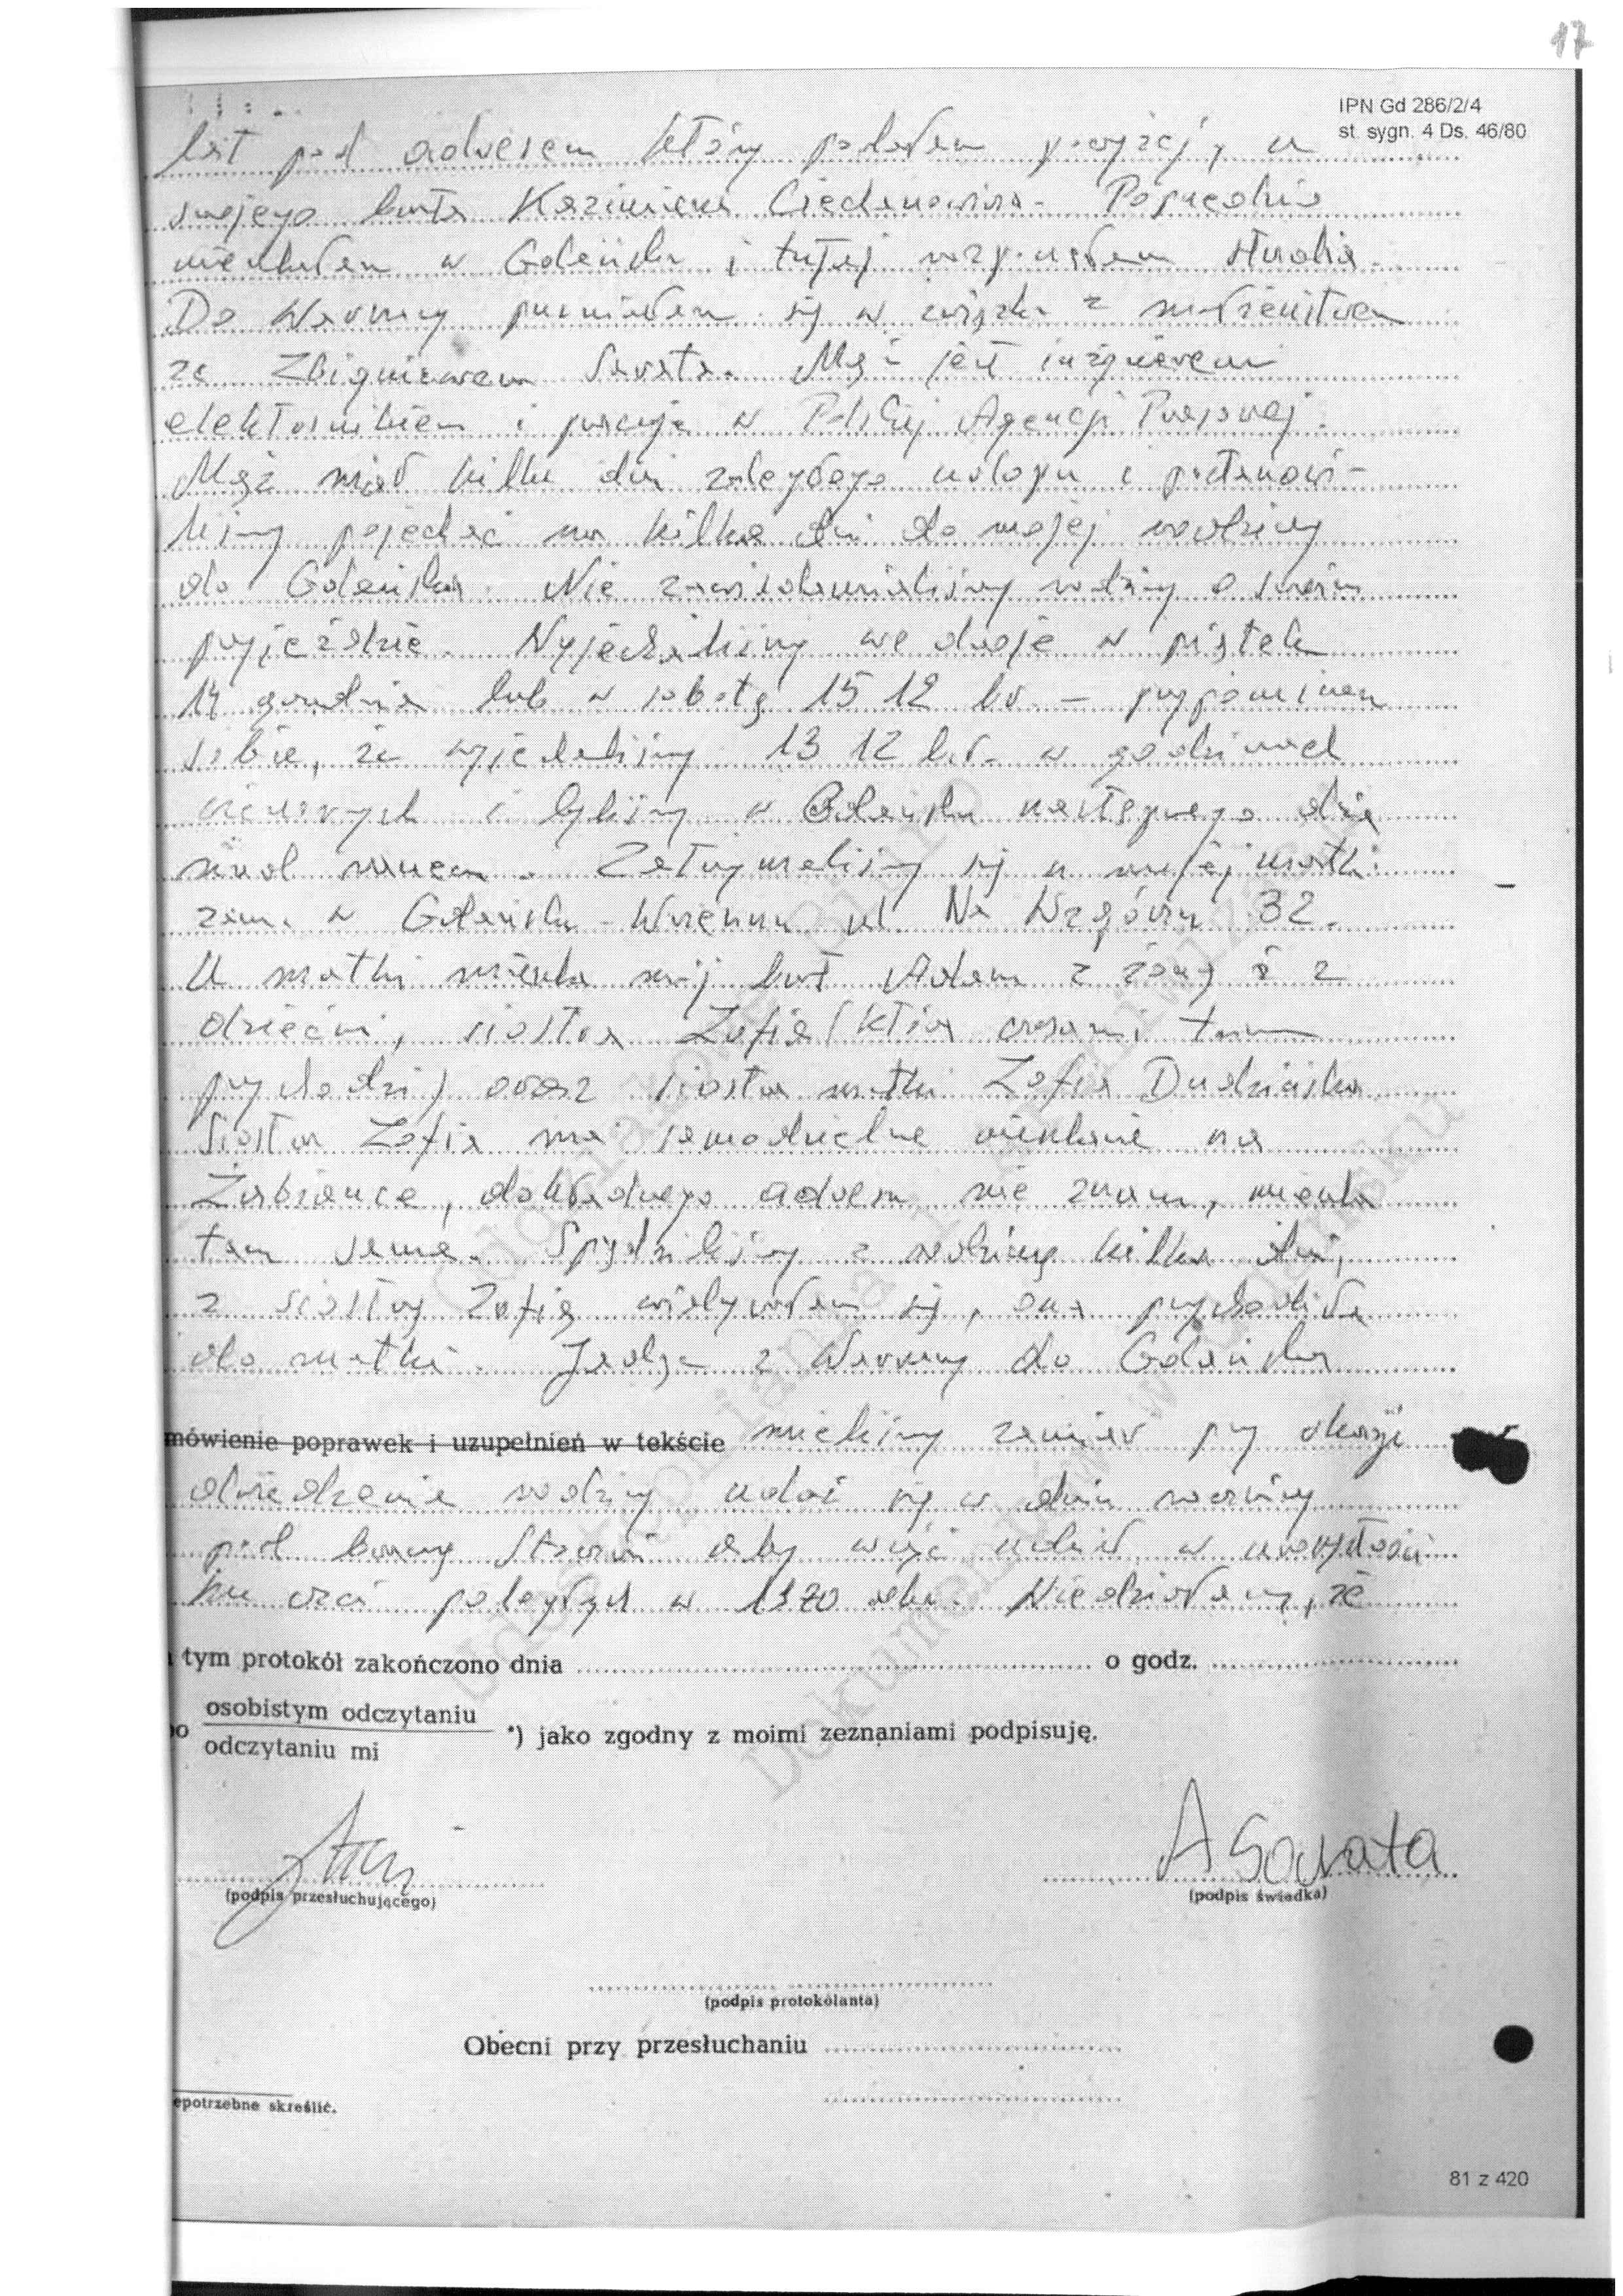 17
IPN Gd 286/2/4
st. sygn. 4 Ds. 46/80
lat pod adresem który podałam powyżej, u
swojego brata Kazimierza Poprzednio
mieszkałam w Gdańsku i tutaj rozpoczęłam studia.
Do Warszawy przeniosłam się w związku z małżeństwem
ze Zbigniewem Sarata. Mąż jest inżynierem
elektronikiem i pracuje w Polskiej Agencji Prasowej.
Mąż miał kilka dni zaległego urlopu i postanowi-
liśmy pojechać na kilka dni do mojej rodziny
do Gdańska. Nie zawiadamialiśmy rodziny o swoim
przyjeździe. Wyjechaliśmy we dwoje w piątek
14 grudnia lub w sobotę 15 12 br. – przypominam
sobie, że wyjechaliśmy 13 12 br. w godzinach
wieczornych i byliśmy w Gdańsku następnego dnia
nad ranem. Zatrzymaliśmy się u mojej matki
zam. w Gdańsku-Wrzeszczu ul. Na Wzgórzu 32.
U matki mieszka mój brat Adam z żoną i 2
dziećmi, siostra Zofia (która czasami tam
przychodzi) oraz siostra matki Zofia Dudzińska
Siostra Zofia ma samodzielne mieszkanie na
Żabiance, dokładnego adresu nie znam, mieszka
tam sama. Spędziliśmy z rodziną kilka dni,
z siostrą Zofią widywałam się, ona przychodziła
do matki. Jadąc z Warszawy do Gdańska
mówienie poprawek i uzupełnień w tekście mieliśmy zamiar przy okazji
odwiedzenia rodziny udać się w dniu rocznicy
pod bramę Stoczni aby wziąć udział w uroczystości
ku czci poległych w 1970 roku. Wiedziałam, że
tym protokół zakończono dnia o godz.
osobistym odczytaniu
po *) jako zgodny z moimi zeznaniami podpisuję.
odczytaniu mi
A Sarata
(podpis przesłuchującego) (podpis świadka)
(podpis protokólanta)
Obecni przy przesłuchaniu
epotrzebne skreślić.
81 z 420